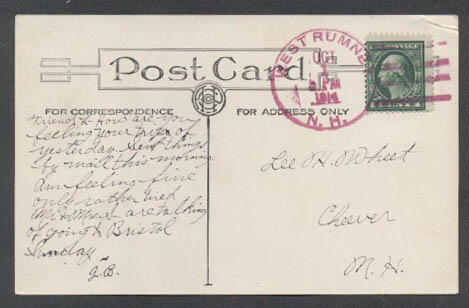 Post Card
FOR CORRESPONDENCE
FOR ADDRESS ONLY
WEST RUMNEY
OCT
PM
1914
N. H.
U.S. POSTAGE
Friend L How are you
feeling your
yesterday. Sent things
by mail this morning
Am feeling fine
only rather tired
Mr & Mrs are talking
of going to Bristol
Sunday
J.B.
Lee H. Wheet
Cheever
N. H.